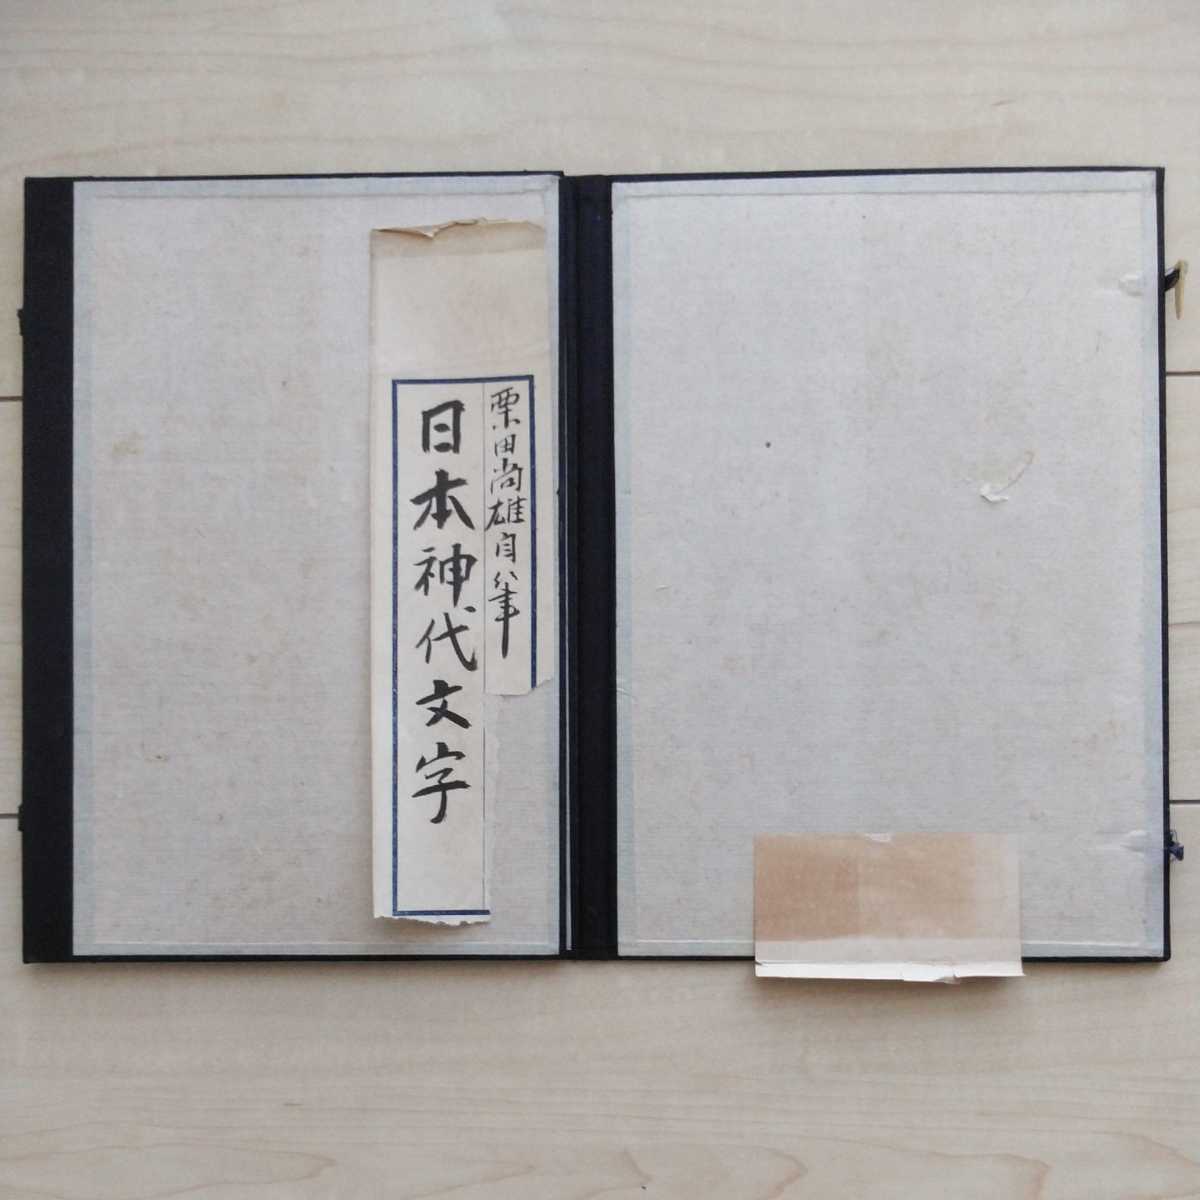 栗田尚雄自筆
日本神代文字